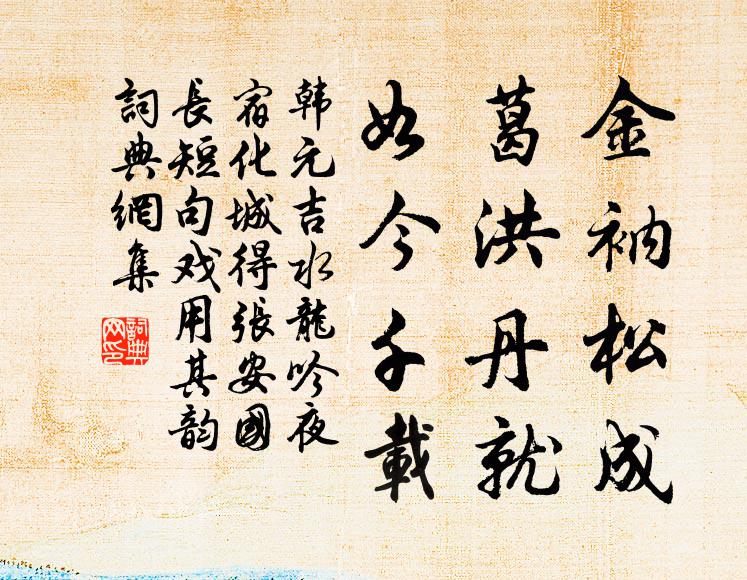 金衲松成
葛洪丹就
如今千載
韩元吉水龍吟夜
宿化城得張安國
長短句戏用其韵
詞典網集
詞典
网印